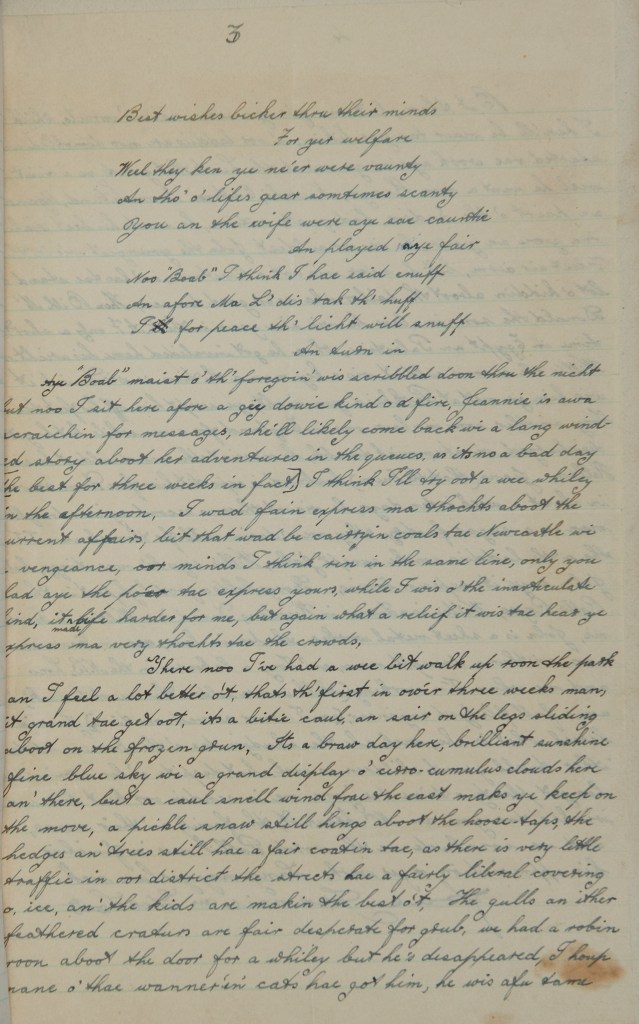 3
Best wishes bicker thru their minds
For yer welfare
Weel they ken ye ne'er were vaunty
An tho' o' lifes gear somtimes scanty
You an the wife were aye sae cauntie
An played aye fair
Noo "Boab" I think I hae said enuff
An afore Ma L'dis tak th' huff
I for peace th' licht will snuff
An turn in
Aye "Boab" maist o' th' foregoin' wis scribbled doon thru the nicht
but noo I sit here afore a gey dowie kind o d fire, Jeannie is awa
scraichin for messages, she'll likely come back wi a lang wind-
ed story aboot her adventures in the queues, as its no a bad day
the best for three weeks in fact,] I think I'll try oot a wee whiley
in the efternoon, I wad fain express ma thochts aboot the
current affairs, bit that wad be cairryin coals tae Newcastle wi
a vengeance, oor minds I think rin in the same line, only you
had aye the po'er tae express yours, while I wis o' the inarticulate
kind, it made life harder for me, but again what a relief it wis tae hear ye
express ma very thochts tae the crowds.
There noo I've had a wee bit walk up roon the park
an I feel a lot better o't, thats th' first in ow'er three weeks man,
it grand tae get oot, its a bitie caul, an sair on the legs sliding
aboot on the frozen grun, Its a braw day here, brilliant sunshine
fine blue sky wi a grand display o' cirro-cumulus clouds here
an' there, but a caul snell wind frae the east maks ye keep on
the move, a pickle snaw still hings aboot the hoose-taps, the
hedges an' trees still hae a fair coatin tae, as there is very little
traffic in oor district the streets hae a fairly liberal covering
o, ice, an' the kids are makin the best o't, The gulls an ither
feathered craturs are fair desperate for grub, we had a robin
roon aboot the door for a whiley but he's desappeared, I houp
nane o' thae wanner'in' cats hae got him, he wis afu tame